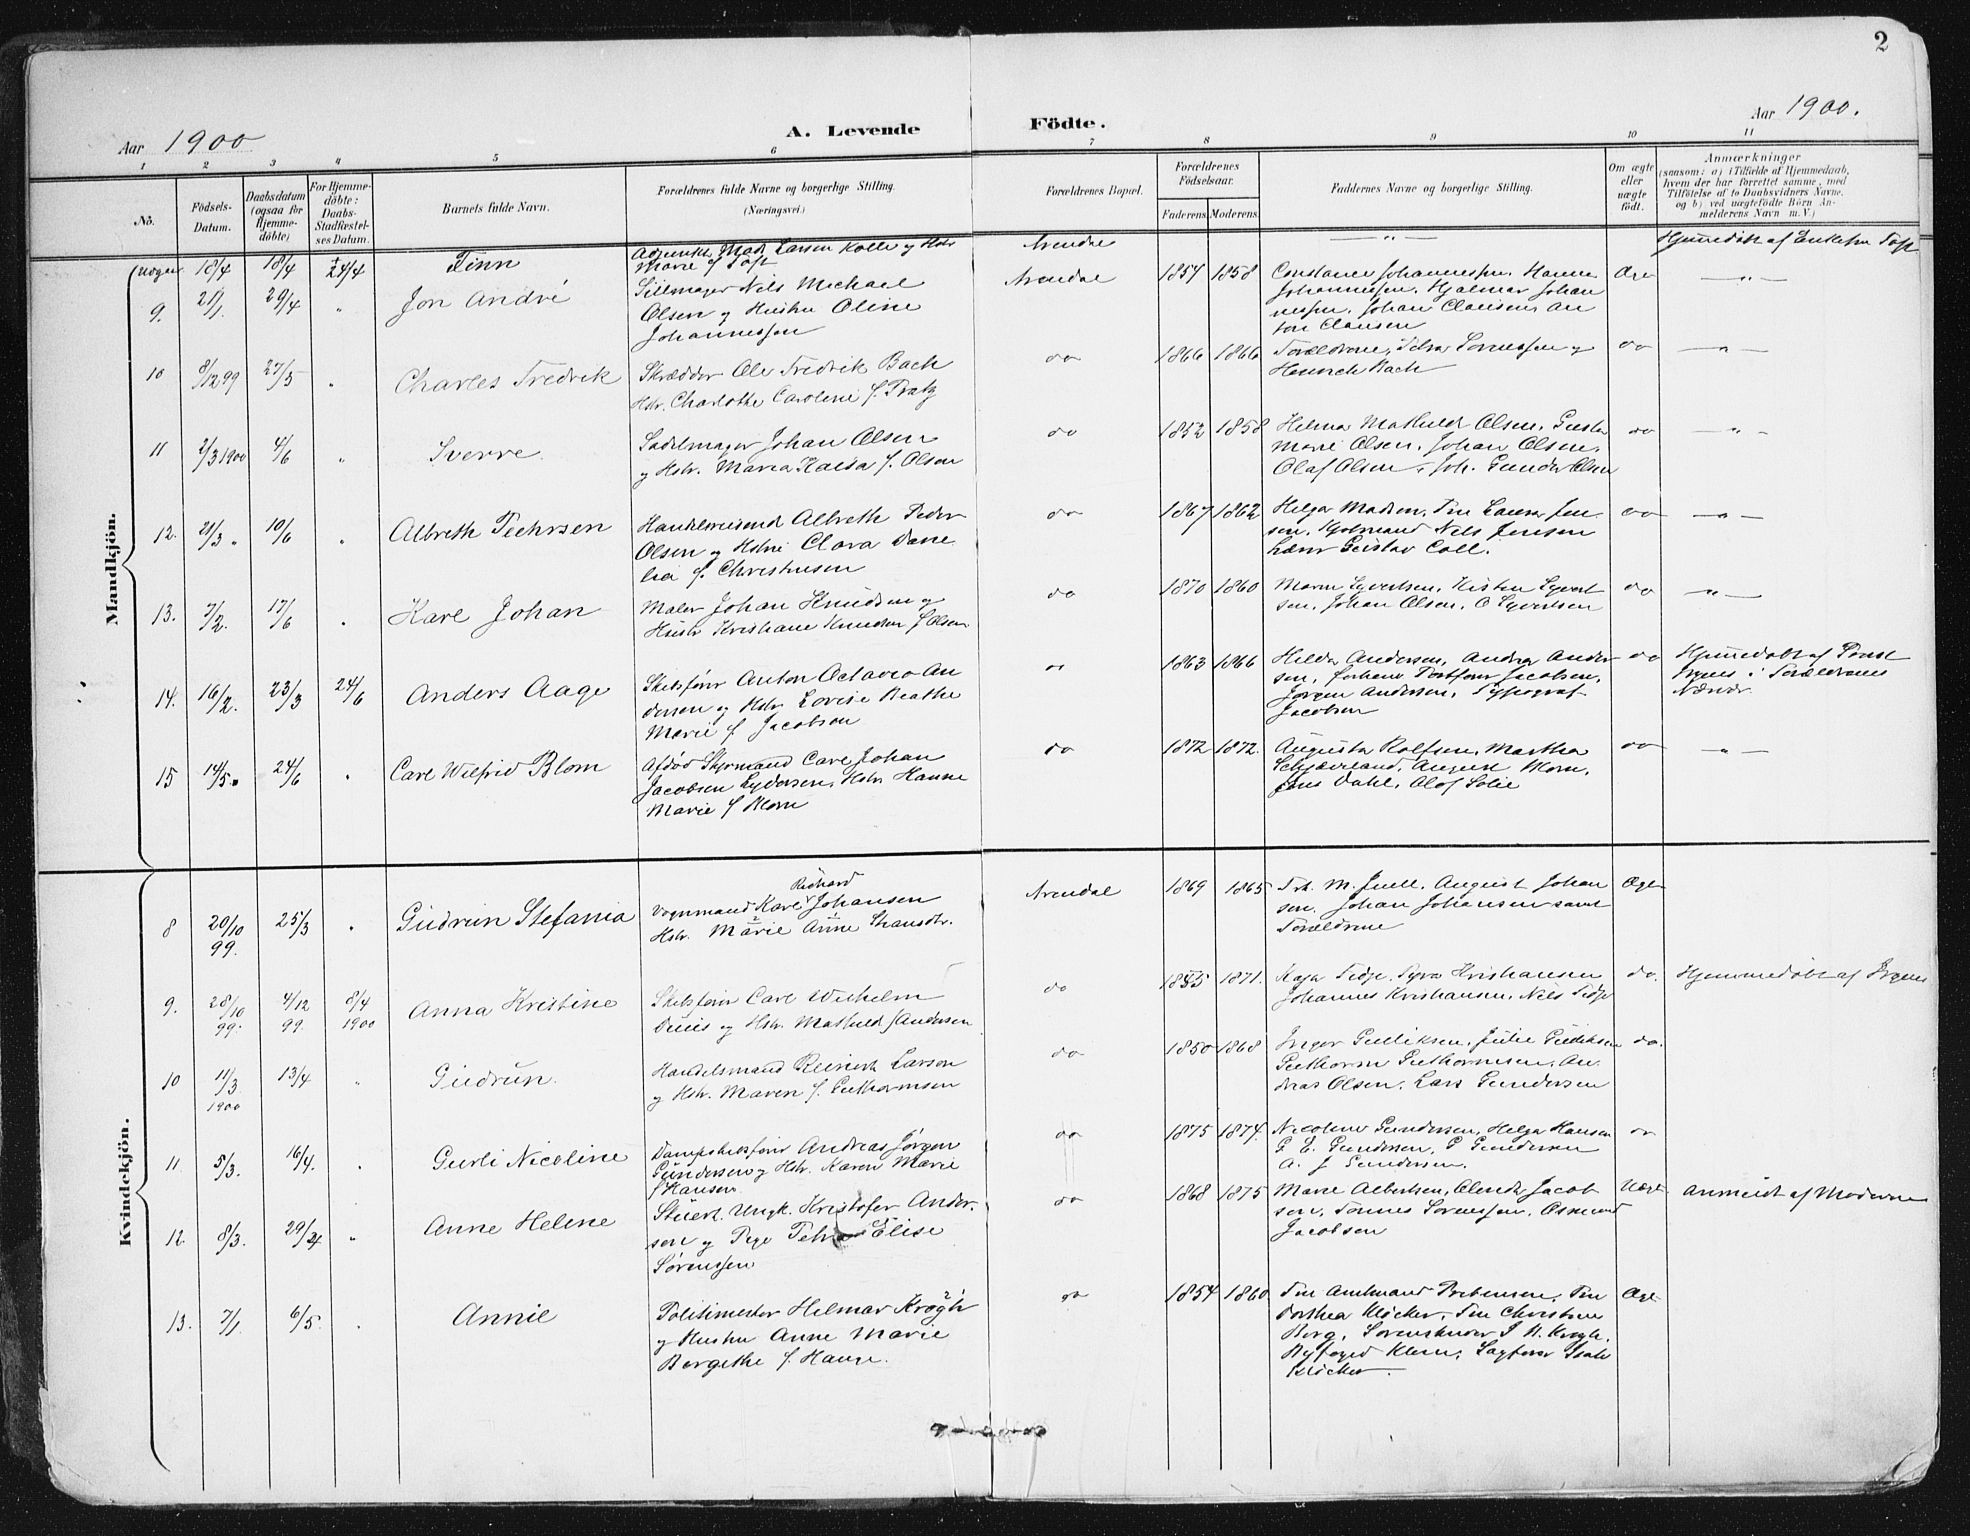 2
Aar 1900
A. Levende
Födte.
Aar 1900.
1 2 3 4 5 6 7 8 9 10 11
No.
Födsels-
Datum.
Daabsdatum
(ogsaa for
Hjemme-
döbte)
For Hjemme-
döbte:
Daabs-
Stadfæstel-
ses Datum.
Barnets fulde Navn.
Forældrenes fulde Navne og borgerlige Stilling.
(Næringsvei.)
Forældrenes Bopæl.
Forældrenes
Födselsaar.
Faderens. Moderens.
Faddernes Navne og borgerlige Stilling.
Om ægte
eller
uægte
födt.
Anmærkninger
(saasom: a) i Tilfælde af Hjemmedaab,
hvem der har forrettet samme, med
Tilföielse af to Daabsvidners Navne.
og b) ved uægtefödte Börn An-
melderens Navn m. V.)
Mandkjön.
18/4 18/4 24/4 Finn
Adjunkt Mads Larsen Kolle og Hstr
Marie f. Toft
Arendal
Hjemmedøbt af Enkefru Toft
9. 21/1. 29/4 " Jon André
Seilmager Nils Michael
Olsen og Hustru Oline
Johannessen
Arendal 1854 1858
Johannessen, Hjalmar Johan
nessen, Johan Clausen, An
ton Clausen
Ægte
10 8/12 99 27/5 " Charles Fredrik
Skrædder Ole Fredrik Bach
Hstr. Charlotte Caroline f. Pratz
do 1866 1866
Forældrene, Petra Sørenssen og
Henrik Bach
do
11 2/3 1900 4/6 " Sverre
Sadelmager Johan Olsen
og Hstr. Maria Kaisa f. Olsen
do 1852 1858
Helma Mathilde Olsen,
Marie Olsen, Johan Olsen,
Olaf Olsen, Joh. Gunder Olsen
do
12. 21/3 " 10/6 " Albreth Peehrsen
Handelsreisende Albreth Peder
Olsen og Hstr Clara
f. Christensen
do 1867 1862
Helga Madsen, Frk Laura Jen
sen, Nils Jensen
Gustav Coll.
do
13. 7/2. 17/6 Karl Johan
Maler Johan Knudsen og
Hustr Kristiane Knudsen f. Olsen
do 1870 1860
Maren Syvertsen, Kisten Syvert
sen, Johan Olsen, O Syvertsen
do
14. 16/2. 23/3 24/6 Anders Aage
Skibsfører Anton Octavio An
dersen og Hstr Lovise Beathe
Marie f. Jacobsen
do 1863 1866
Hilda Andersen, Andrea Ander
sen, Jacobsen,
Jørgen Andersen, Typograf
Jacobsen
do
Hjemmedøbt af Præst
Irgens i Forældrenes
Nærvær
15 14/5 " 24/6 " Carl Wilfrid Blom
Afdød Styrmand Carl Johan
Jacobsen Lydersen, Hstr Hanne
Marie f Blom
do 1872 1872.
Augusta Rolfsen, Martha
August Blom,
Jens Dahl, Olof Solie
do
Kvindekjön.
8 20/10 99. 25/3 " Gudrun Stefania
Richard
Vognmand Karl Johansen
Hstr. Marie Anne
Arendal 1869 1865
M. Juell, August Johan
sen, Johan Johansen samt
Forældrene
Ægte
9. 28/10 99. 4/12 99. 8/4 1900 Anna Kristine
Skibsfører Carl Wilhelm
og Hstr. Mathilde f Andersen
do 1855 1871.
Kaja Fidje, Kristiansen
Johannes Kristiansen, Nils Fidje
do.
Hjemmedøbt af Irgens
10 11/3. 1900 13/4 " Gudrun.
Handelsmand Reinert Larsen
og Hstr. Maren f. Guthormsen
do 1850 1868
Inger Gulliksen, Julie
Guthorm Guthormsen, An
dreas Olsen, Lars Gundersen
do.
11. 5/3. 16/4. Gurli Nicoline
Dampskibsfører Andreas Jørgen
Gundersen og Hstr. Karen Marie
f Hansen
do 1875 1874.
Nicoline Gundersen, Helga Hansen
G. E. Gundersen, G Gundersen
A. J Gundersen.
do
12. 8/3. 29/4 " Anne Helene
Stuert. Ungk. Kristofer Ander-
sen og Pige Petra Elise
Sørenssen
do 1868 1875
Marie Albertsen, Jacob
sen, Tønnes Sørenssen, Osmund
Jacobsen
Uægte
Anmeldt af Moderen
13. 7/1. 6/5. Annie
Politimester Hilmar Krogh
og Hustru Anne Marie
Bergithe f. Hange.
do 1854 1860.
Fru Amtmand Prebensen, Fru
Dorthea Kløcker, Fru Christine
Berg, Sorenskriver Krogh,
Byfoged Klem, Sagfører
Kløcker.
Ægte